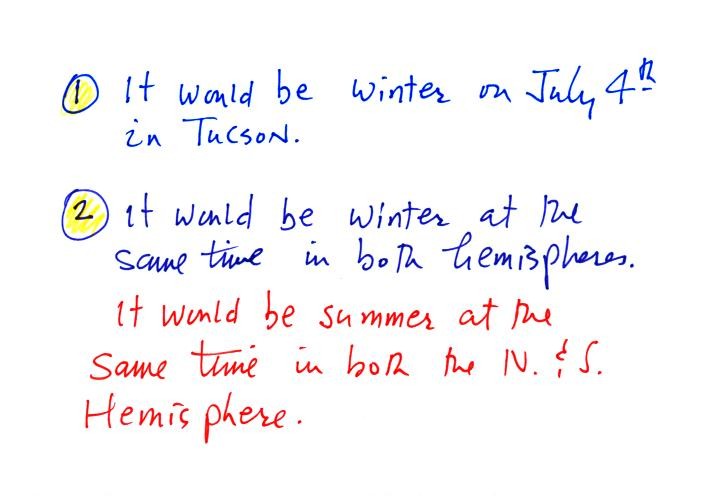 ① It would be winter on July 4th
in Tucson.
② it would be winter at the
same time in both hemispheres.
It would be summer at the
same time in both the N. & S.
Hemisphere.